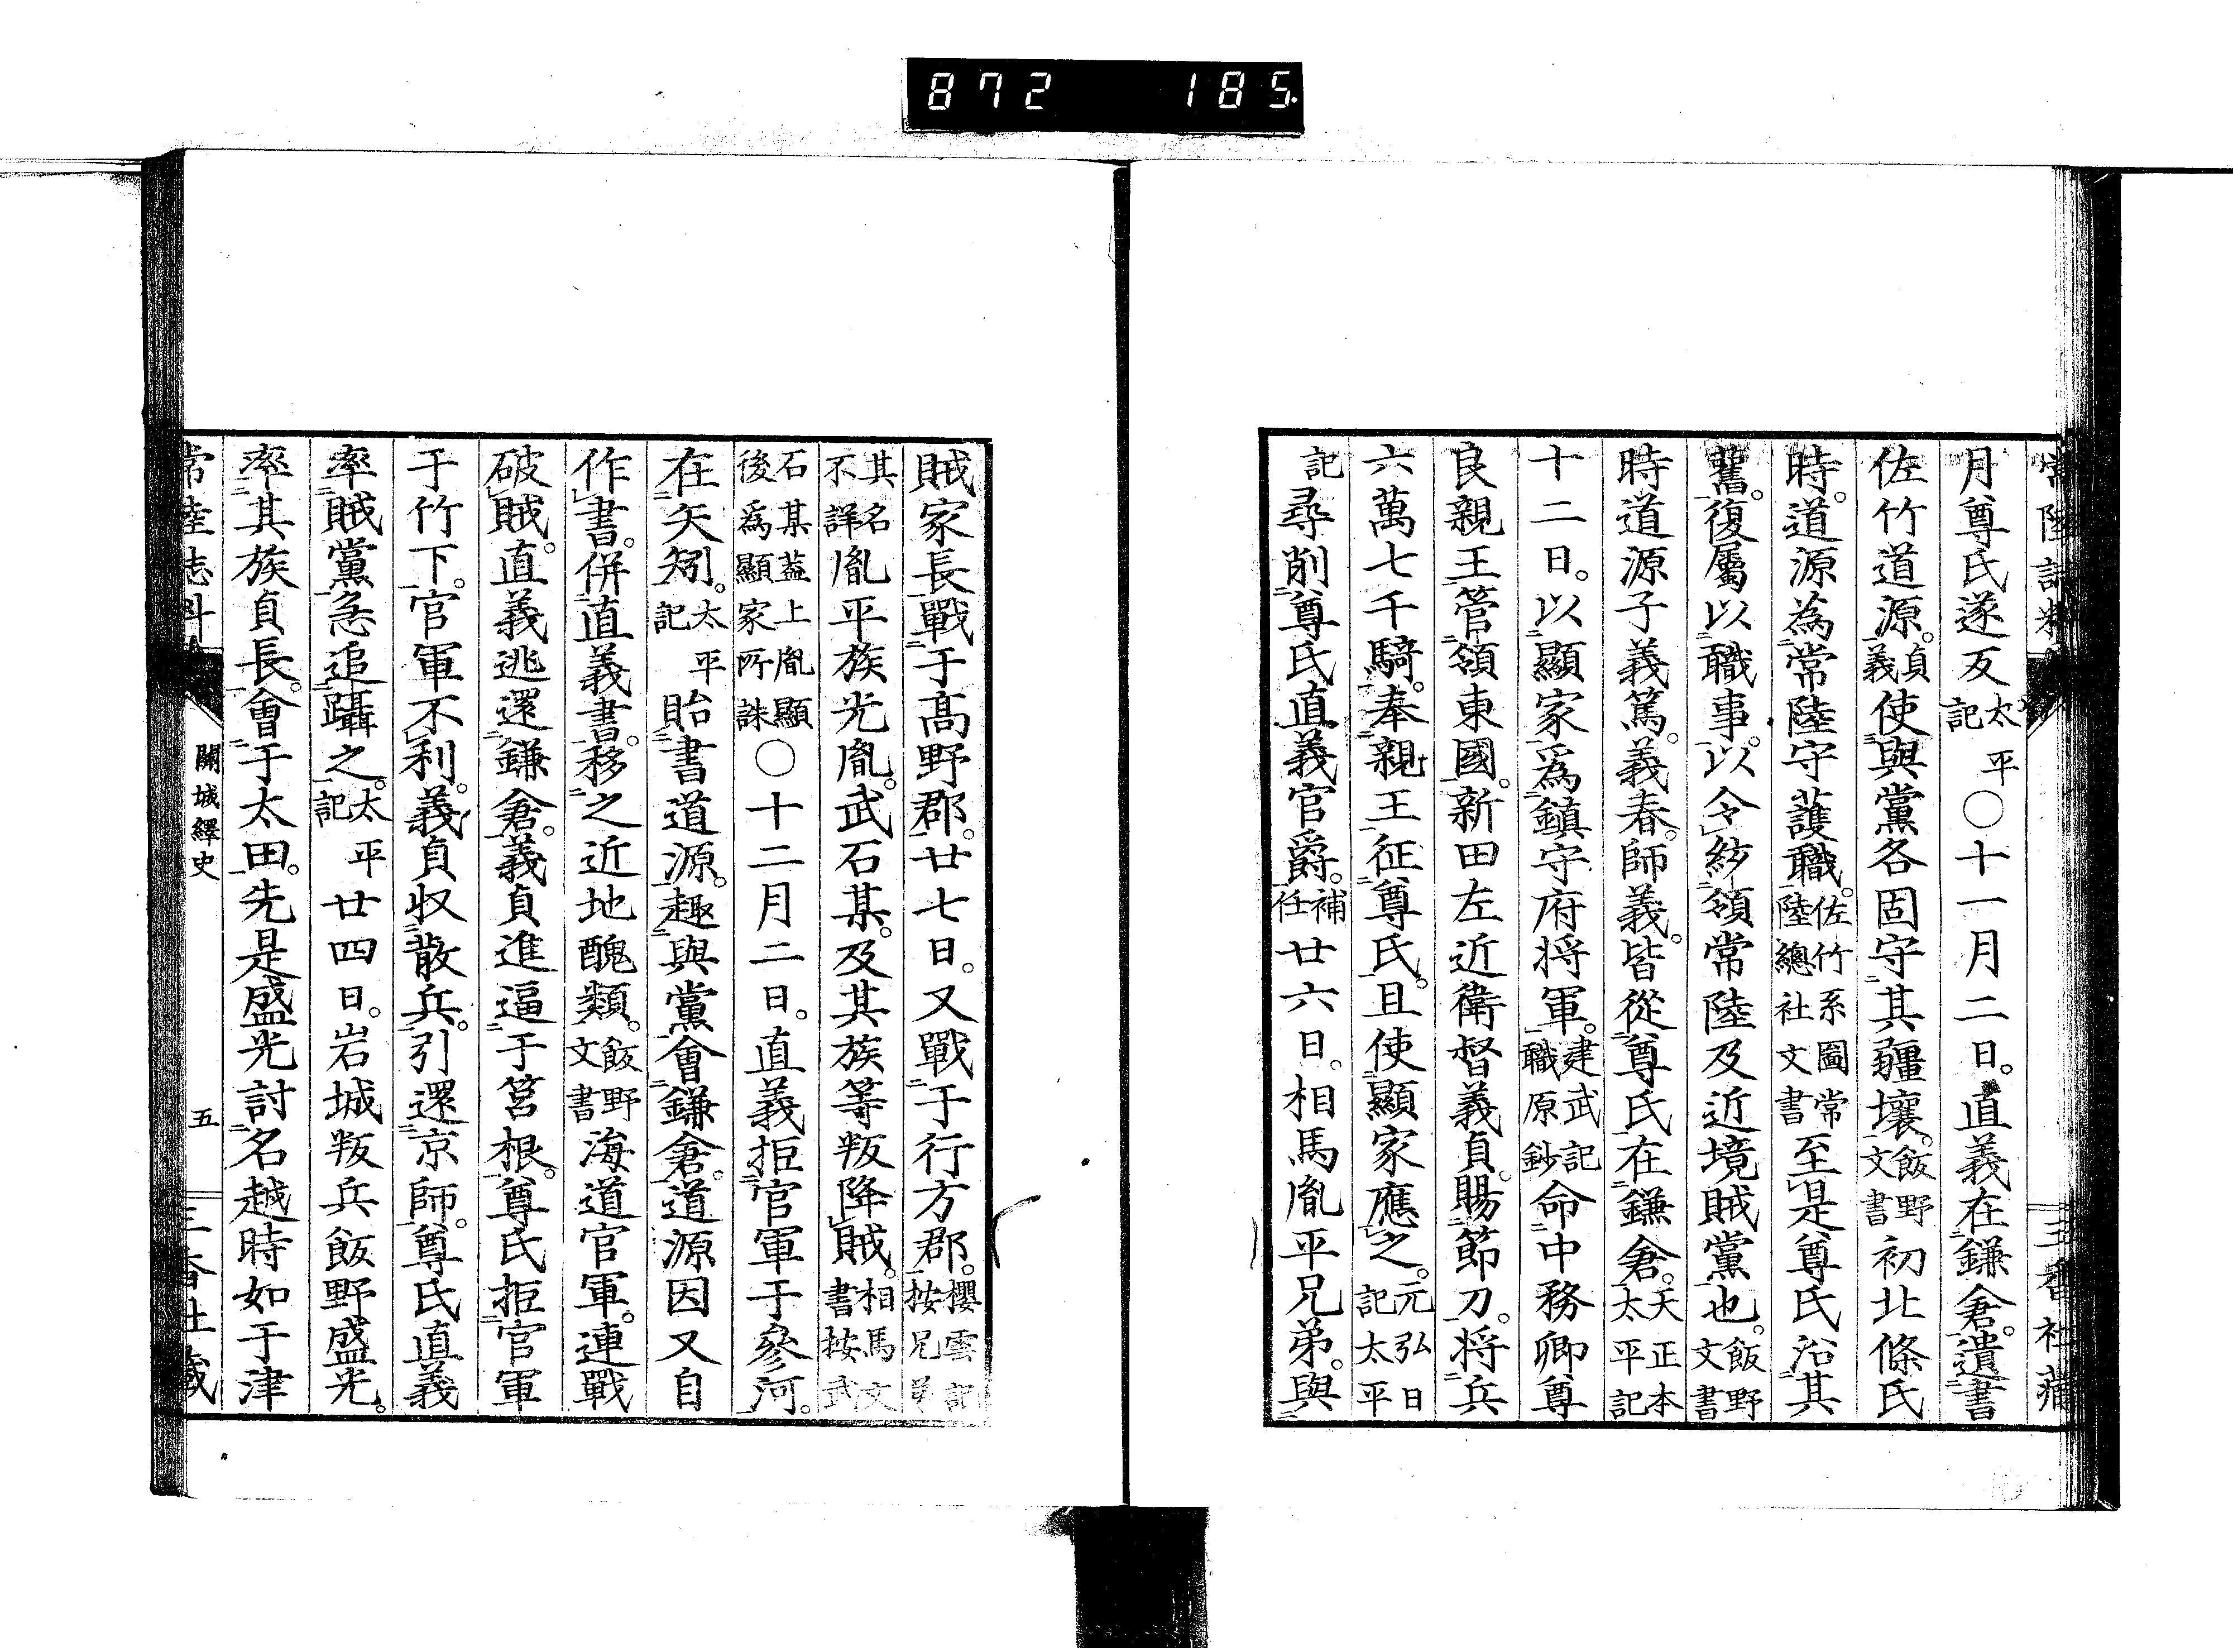 872 185.
月尊氏遂反太平記〇十一月二日。直義在鎌倉。遺書
佐竹道源。貞義使與黨各固守其疆壤。飯野文書初北條氏
時。道源為常陸守護職。佐竹系圖常陸總社文書至是尊氏沿其
舊。復屬以職事。以令紗領常陸及近境賊黨也。飯野文書
時道源子義篤。義春。師義。皆從尊氏在鎌倉。天正本太平記
十二日。以顯家為鎮守府将軍。建武記職原鈔命中務卿尊
良親王管領東國。新田左近衛督義貞。賜節刀。将兵
六萬七千騎。奉親王征尊氏。且使顯家應之。元弘日記太平
記尋削尊氏直義官爵。補任廿六日。相馬胤平兄弟。與
賊家長戰于高野郡。廿七日。又戰于行方郡。櫻雲記按兄弟
其名不詳胤平族光胤。武石某。及其族等叛降賊。相馬文書按武
石某蓋上胤顯後為顯家所誅〇十二月二日。直義拒官軍于參河。
在矢矧。太平記貽書道源。趣與黨會鎌倉。道源因又自
作書。併直義書。移之近地醜類。飯野文書海道官軍。連戰
破賊。直義逃還鎌倉。義貞進逼于筥根。尊氏拒官軍
于竹下。官軍不利。義貞収散兵。引還京師。尊氏直義
率賊黨急追躡之。太平記廿四日。岩城叛兵飯野盛光。
率其族貞長。會于太田。先是盛光討名越時如于津
關城繹史 五